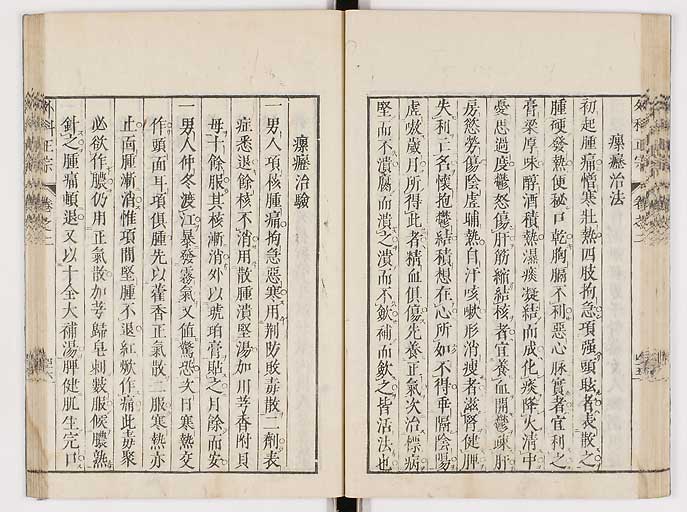 瘰癧治法
初起腫痛憎寒壯熱四肢拘急項强頭眩者表散之
腫硬發熱便秘口乾胸膈不利惡心脉實者宜利之
膏粱厚味醇酒積熱濕痰凝結而成化痰降火清中
憂思過度鬱怒傷肝筋縮結核者宜養血開鬱疎肝
房慾勞傷陰虛晡熱自汗咳嗽形消瘦者滋腎健脾
失利亡名懷抱鬱結積想在心所如不得乖隔陰陽
虛嗽歲月所得此者精血俱傷先養正氣次治標病
堅而不潰腐而潰之潰而不歛補而歛之皆活法也
瘰癧治驗
一男人項核腫痛拘急惡寒用荆防敗毒散二劑表
症悉退餘核不消用散腫潰堅湯加川芎香附貝
母十餘服其核漸消外以琥珀膏貼之月餘而安
一男人仲冬渡江暴發霧氣又值驚恐次日寒熱交
作頭面耳項俱腫先以藿香正氣散二服寒熱亦
止面腫漸消惟項間堅腫不退紅㷫作痛此毒聚
必欲作膿仍用正氣散加芎歸皂刺數服候膿熟
針之腫痛頓退又以十全大補湯脾健肌生完口
外科正宗
卷之二